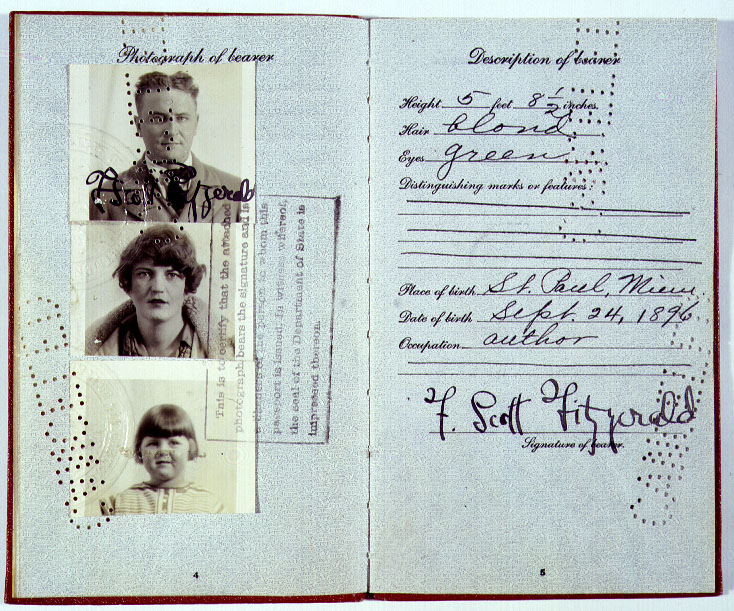 Photograph of bearer
F Scott Fitzgerald
This is to certify that the attached
photograph bears the signature and is
a likeness of the person to whom this
passport is issued. In witness whereof
the seal of the Department of State is
impressed thereon.
4
Description of bearer
Height 5 feet 8 1/2 inches.
Hair blond
Eyes green
Distinguishing marks or features:
Place of birth St. Paul, Minn.
Date of birth Sept. 24, 1896
Occupation author
F. Scott Fitzgerald
Signature of bearer.
5